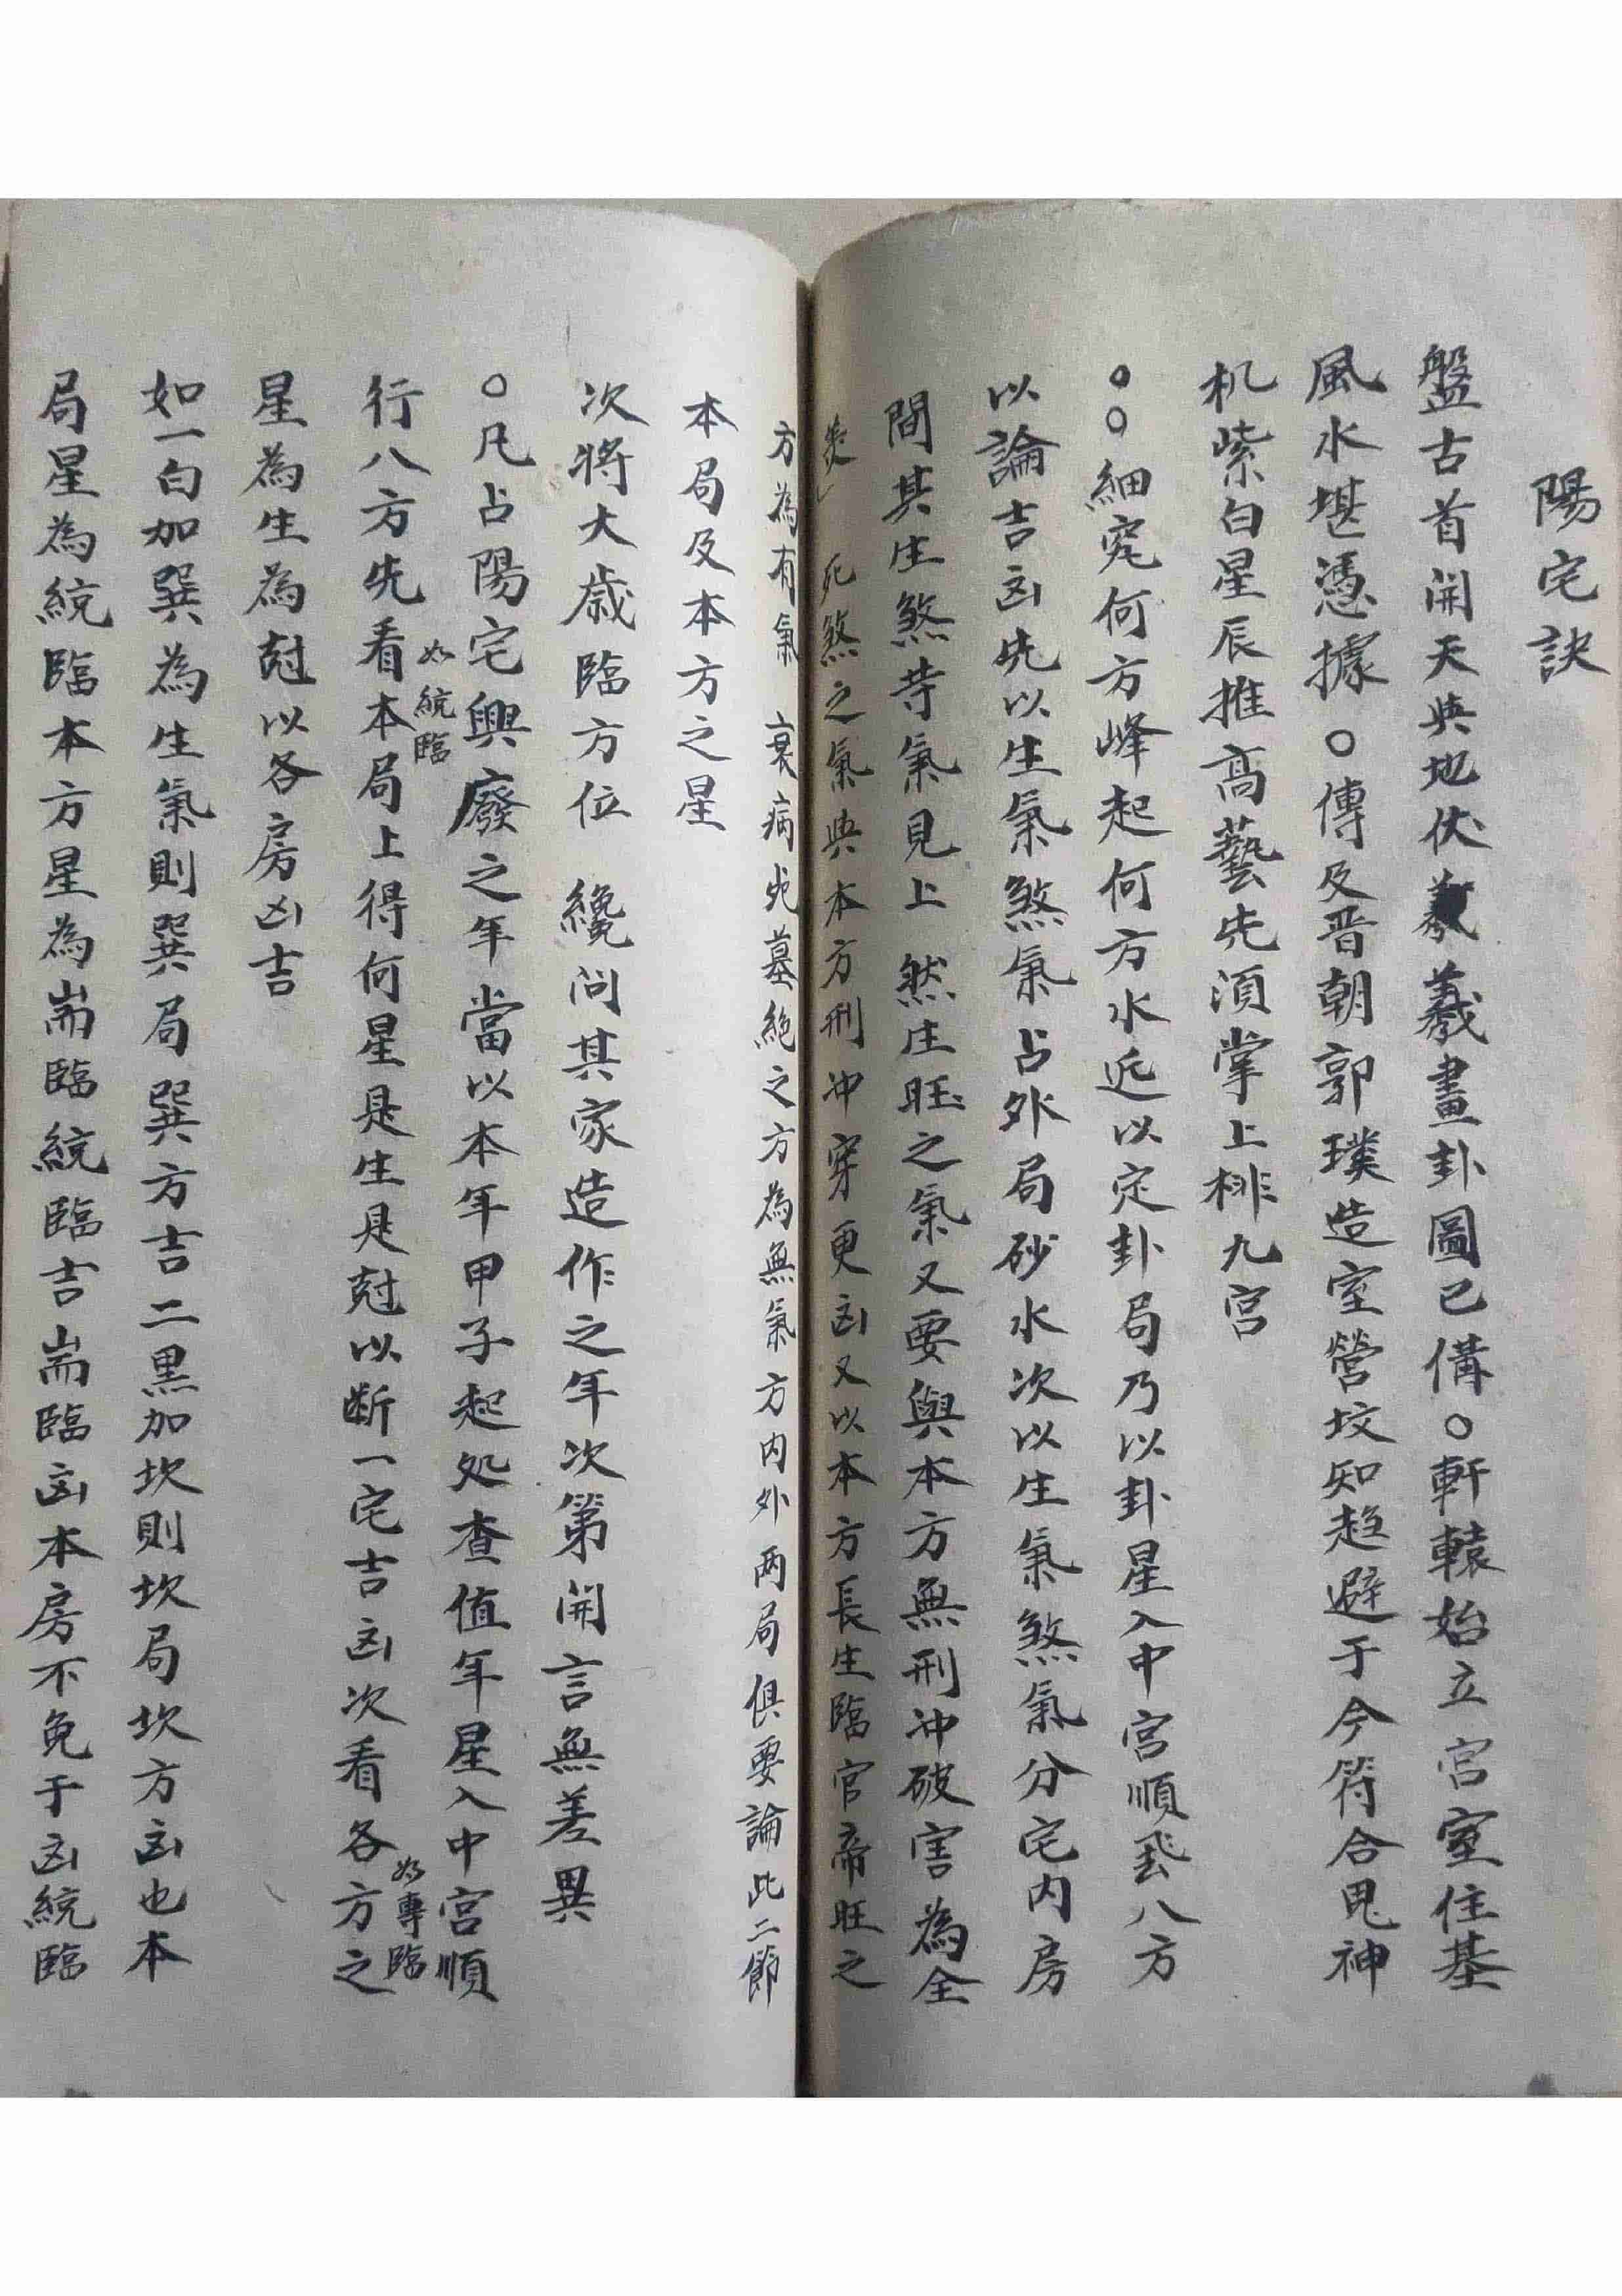 陽宅訣
盤古首開天與地伏羲羲畫卦圖已備○軒轅始立宮室住基
風水堪憑據○傳及晋朝郭璞造室營坟知趋避于今符合鬼神
机紫白星辰推高藝先須掌上排九宮
○○細究何方峰起何方水近以定卦局乃以卦星入中宮順飛八方
以論吉凶先以生氣煞氣占外局砂水次以生氣煞氣分宅内房
間其生煞等氣見上 然生旺之氣又要與本方無刑冲破害為全
美 死煞之氣與本方刑冲穿更凶又以本方長生臨官帝旺之
方為有氣 衰病死墓絶之方為無氣方内外两局俱要論此二節
本局及本方之星
次將大歲臨方位 纔问其家造作之年次第開言無差異
○凡占陽宅興廢之年當以本年甲子起处查值年星入中宮順
行八方先看本局上得何星是生是尅以断一宅吉凶次看各方之
如統臨
如專臨
星為生為尅以各房凶吉
如一白加巽為生氣則巽局巽方吉二黒加坎則坎局坎方凶也本
局星為統臨本方星為耑臨統臨吉耑臨凶本房不免于凶統臨